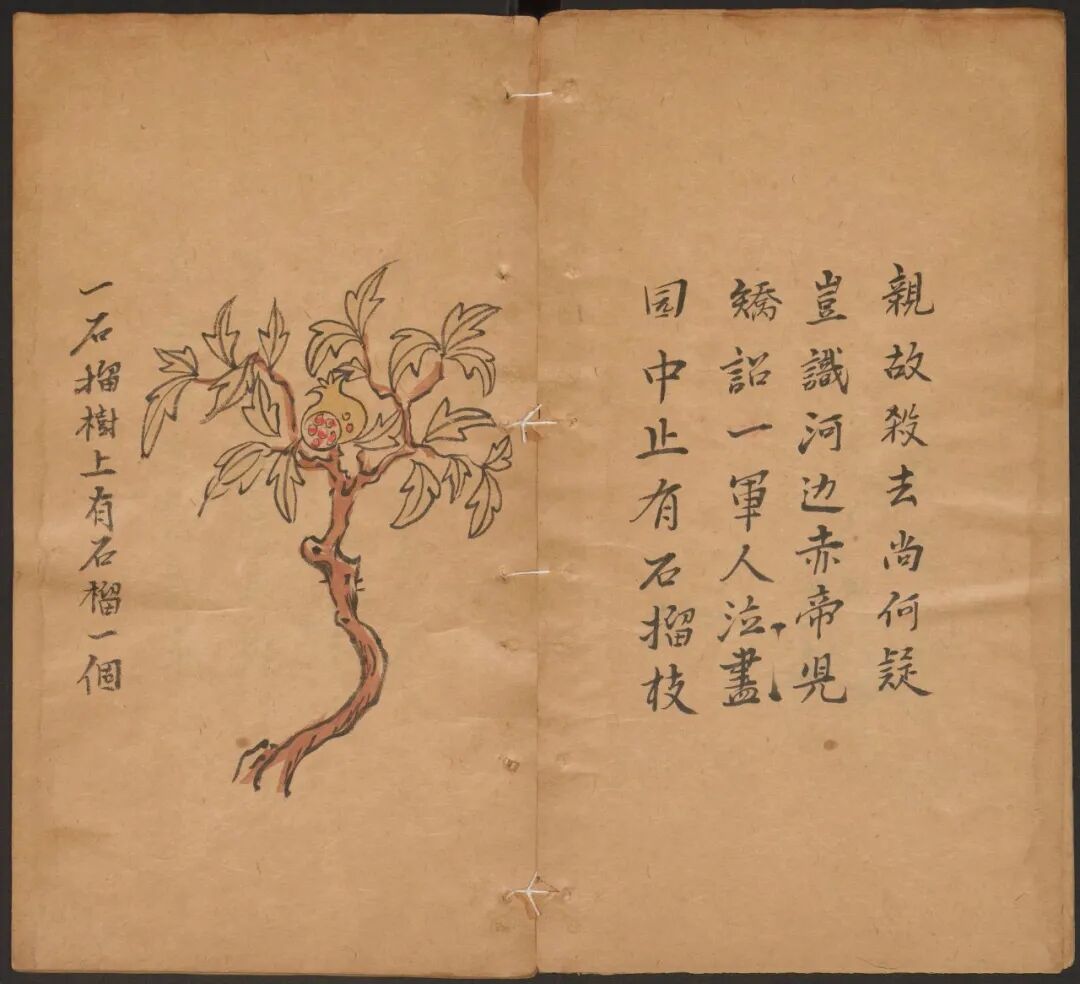 親故殺去尚何疑
豈識河边赤帝児
矯詔一軍人泣盡
园中止有石榴枝
一石榴樹上有石榴一個